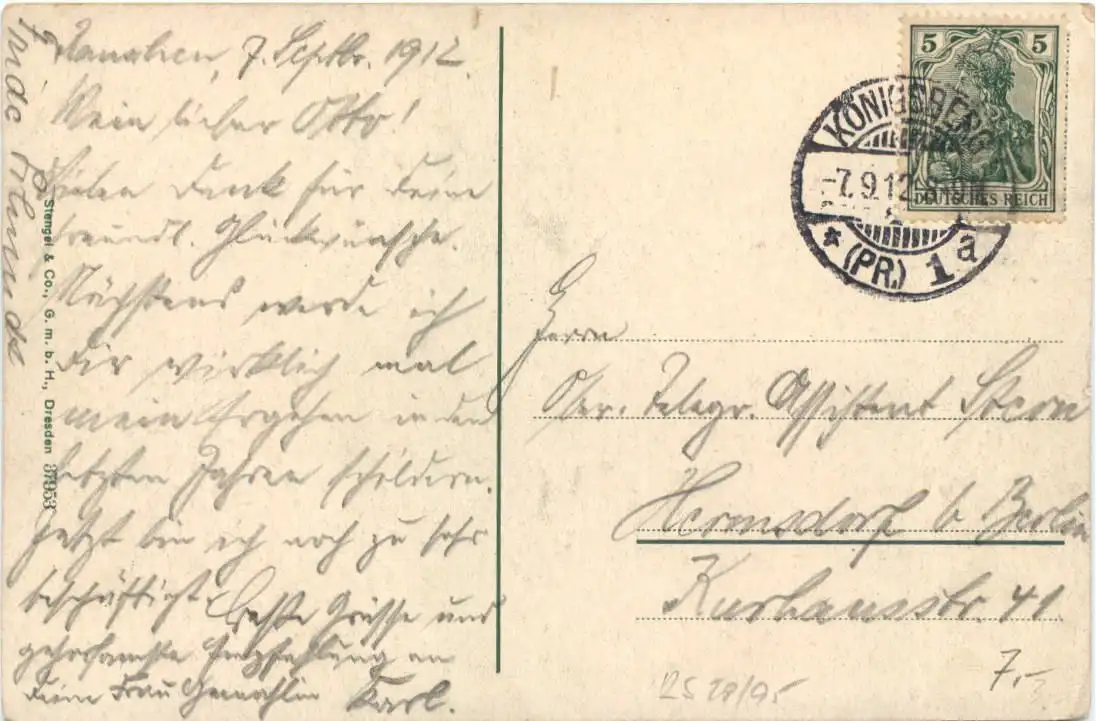 7. Septbr. 1912.
Mein lieber Otto!
Vielen Dank für Deine
freundl. Glückwünsche.
Nächstens werde ich
Dir wirklich mal
mein Ergehen in den
letzten Jahren schildern.
Jetzt bin ich noch zu sehr
beschäftigt. Beste Grüsse und
gehorsamste Empfehlung an
Deine Frau Gemahlin Karl.
Stengel & Co., G. m. b. H., Dresden 37953
5 5
DEUTSCHES REICH
KÖNIGSBERG
-7.9.12.8-9
* (PR.) 1a
Herrn
Ober-Telegr. Assistent Stern
Hermsdorf b Berlin
Kurhausstr. 41
7.-